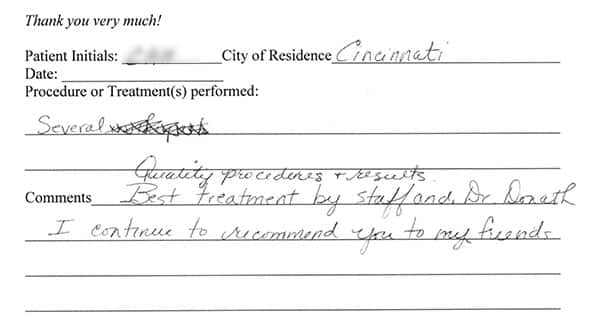 Thank you very much!
Patient Initials: City of Residence Cincinnati
Date:
Procedure or Treatment(s) performed:
Several
Quality procedures + results.
Comments Best treatment by staff and Dr. Donath
I continue to recommend you to my friends